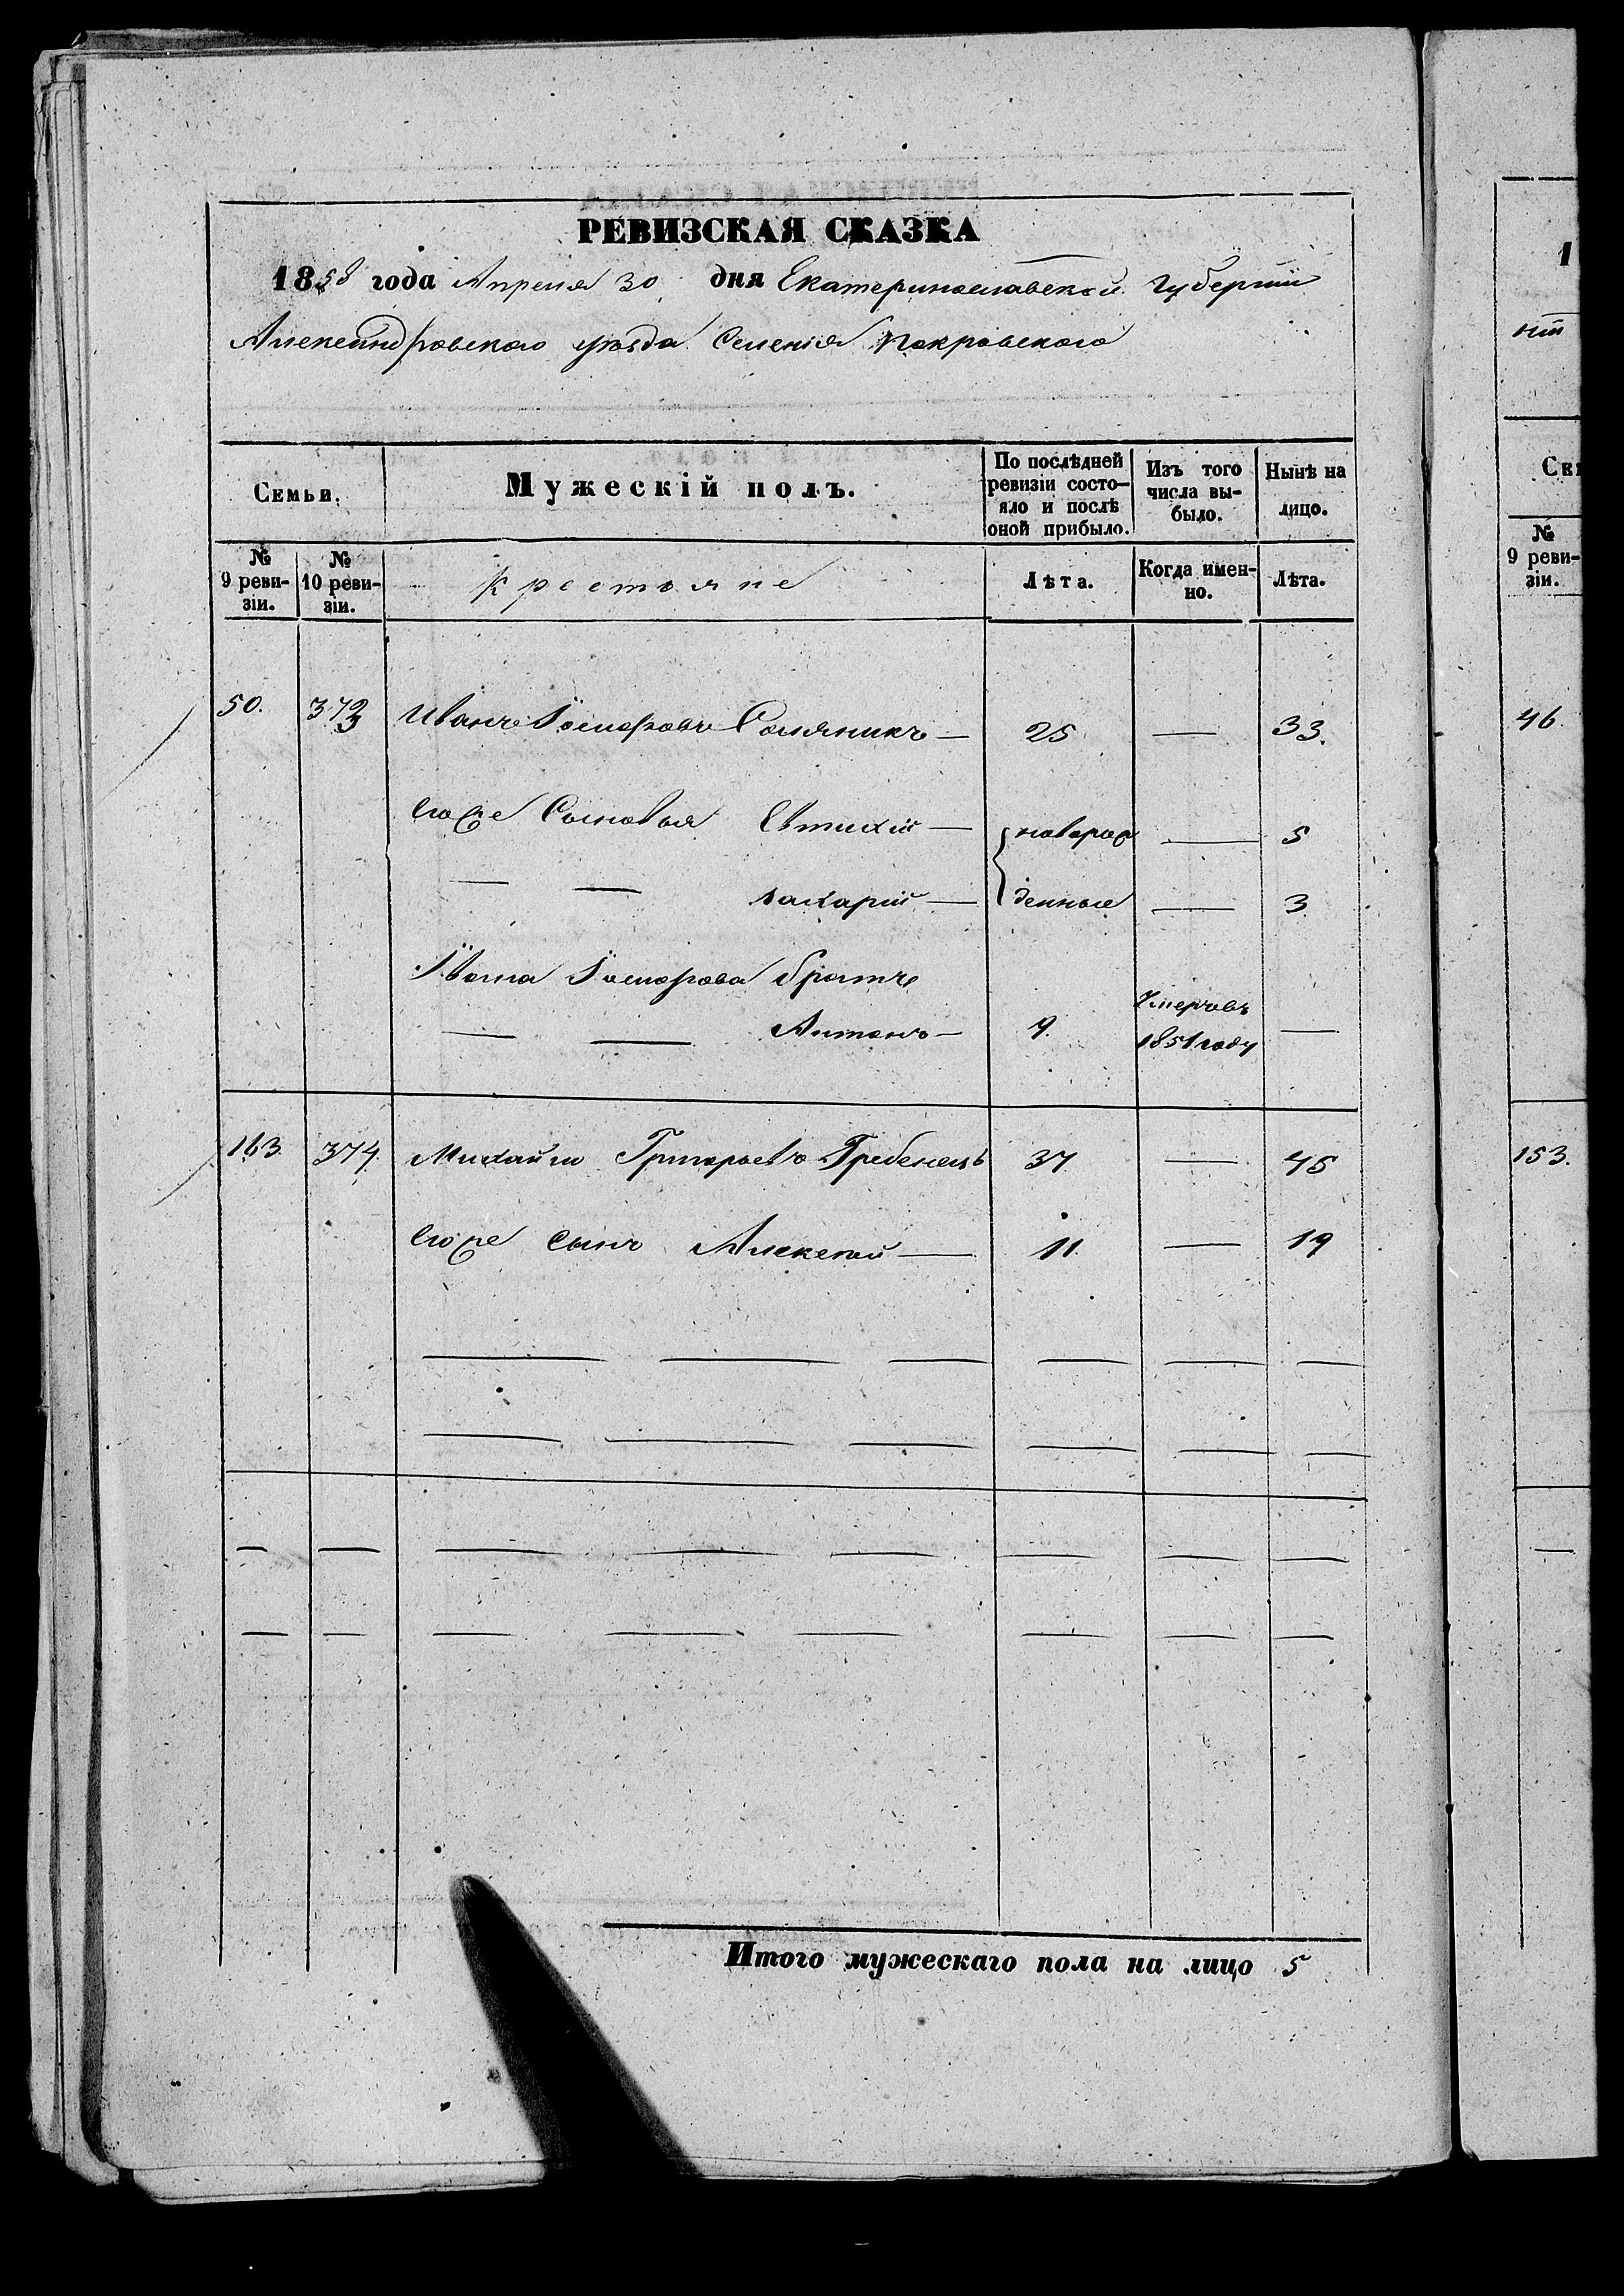 РЕВИЗСКАЯ СКАЗКА
1858 года Апреля 30 дня Екатеринославской Губернии
Александровского уѣзда Селенія Покровского
Семьи.
Мужескій полъ.
По послѣдней ревизіи состо-
яло и послѣ оной прибыло.
Изъ того числа вы-
было.
Нынѣ на лицо.
№ 9 реви-
зіи.
№ 10 реви-
зіи.
Крестьяне
Лѣта.
Когда имен-
но.
Лѣта.
50. 373 Иванъ — 25 — 33.
Егоже Сыновья Евтихій — новорож — 5
— — Захарій — денные — 3
Ивана братъ
— — Антонъ — 9. Умеръ въ 1851 году —
163. 374. Михайло Григорьевъ Гребенецъ 37. — 45
Егоже сынъ Алексей — 11. — 19
Итого мужескаго пола на лицо 5
1
Сем
№
9 реви-
зіи.
46.
153.